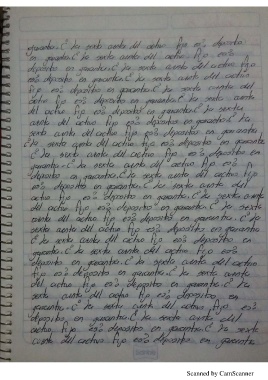 garantia. C la sexta cuenta del activo fijo es? deposito
en garantia. C la sexta cuenta del activo fijo es?
deposito en garantia. C la sexta cuenta del activo fijo
es? deposito en garantia. C la sexta cuenta del activo
fijo es? deposito en garantia. C la sexta cuenta del
activo fijo es? deposito en garantia. C la sexta cuenta
del activo fijo es? deposito en garantia. C la sexta
cuenta del activo fijo es? depositos en garantia. C la
sexta cuenta del activo fijo es? depositos en garantia
C la sexta cuenta del activo fijo es? deposito en garantia.
C la sexta cuenta del activo fijo es? depositos en
garantia. C la sexta cuenta del activo fijo es?
deposito en garantia. C la sexta cuenta del activo
fijo es? deposito en garantia. C la sexta cuenta del
activo fijo es? deposito en garantia. C la sexta cuenta
del activo fijo es? deposito en garantia. C la sexta
cuenta del activo fijo es? deposito en garantia. C la
sexta cuenta del activo fijo es? depositos en garantia
C la sexta cuenta del activo fijo es? depositos en
garantia. C la sexta cuenta del activo fijo es?
deposito en garantia. C la sexta cuenta del activo
fijo es? deposito en garantia. C la sexta cuenta
del activo fijo es? deposito en garantia. C la
sexta cuenta del activo fijo es? deposito en
garantia. C la sexta cuenta del activo fijo es?
deposito en garantia. C la sexta cuenta del
activo fijo es? deposito en garantia. C la sexta
cuenta del activo fijo es? deposito en garantia
Scanned by CamScanner